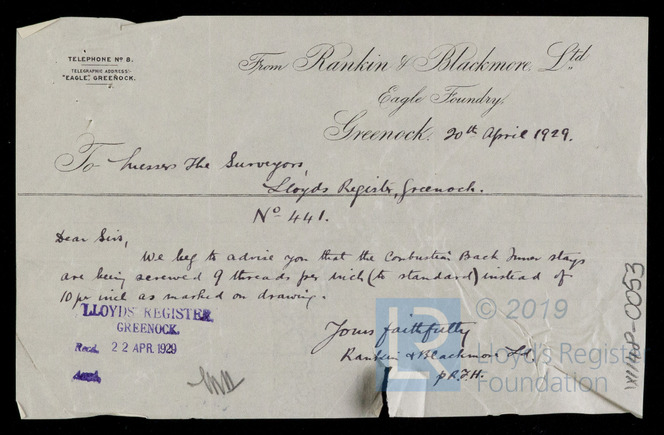 TELEPHONE Nº 8.
TELEGRAPHIC ADDRESS:-
"EAGLE", GREENOCK.
From Rankin & Blackmore, Ltd
Eagle Foundry,
Greenock. 20th April 1929.
To Messrs The Surveyors,
Lloyds Register, Greenock.
Nº 441.
Dear Sirs,
We beg to advise you that the Combustion Back Inner stays
are being screwed 9 threads per inch (to standard) instead of
10 per inch as marked on drawing.
LLOYDS REGISTER,
GREENOCK.
Recd. 22 APR. 1929
Yours faithfully
Rankin & Blackmore Ld.
p R.F.H.
© 2019
Lloyd's Register
Foundation
LR
1X11/48-0053